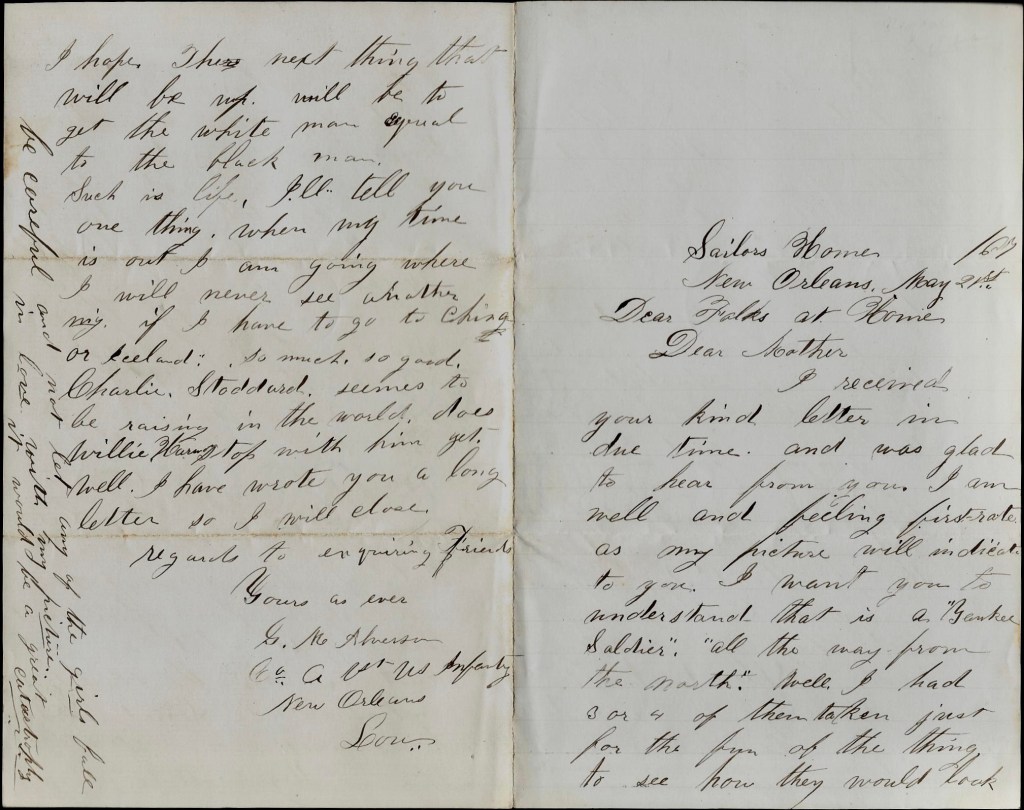 I hope. The next thing that
will be up. will be to
get the white man equal
to the black man.
Such is life, I'll tell you
one thing. when my time
is out I am going where
I will never see another
nig. if I have to go to China
or Iceland". so much, so good.
Charlie. Stoddard. seemes to
be raising in the world. does
Willie stop with him yet.
Well. I have wrote you a long
letter so I will close
regards to enquiring Friends
Yours as ever
G. M Alverson
Co. A 1st US Infanty
New Orleans
Lou.
be careful and not let any of the girls fall
in love with my picture. it would be a great
catastrophy
Sailors Home
New Orleans. May 21st. /67
Dear Folks at Home
Dear Mother
I received
your kind letter in
due time. and was glad
to hear from you. I am
well and feeling first-rate
as my picture will indicate
to you. I want you to
understand that is a "Yankee
Soldier". "all the way from
the north". Well I had
3 or 4 of them taken just
for the fun of the thing
to see how they would look